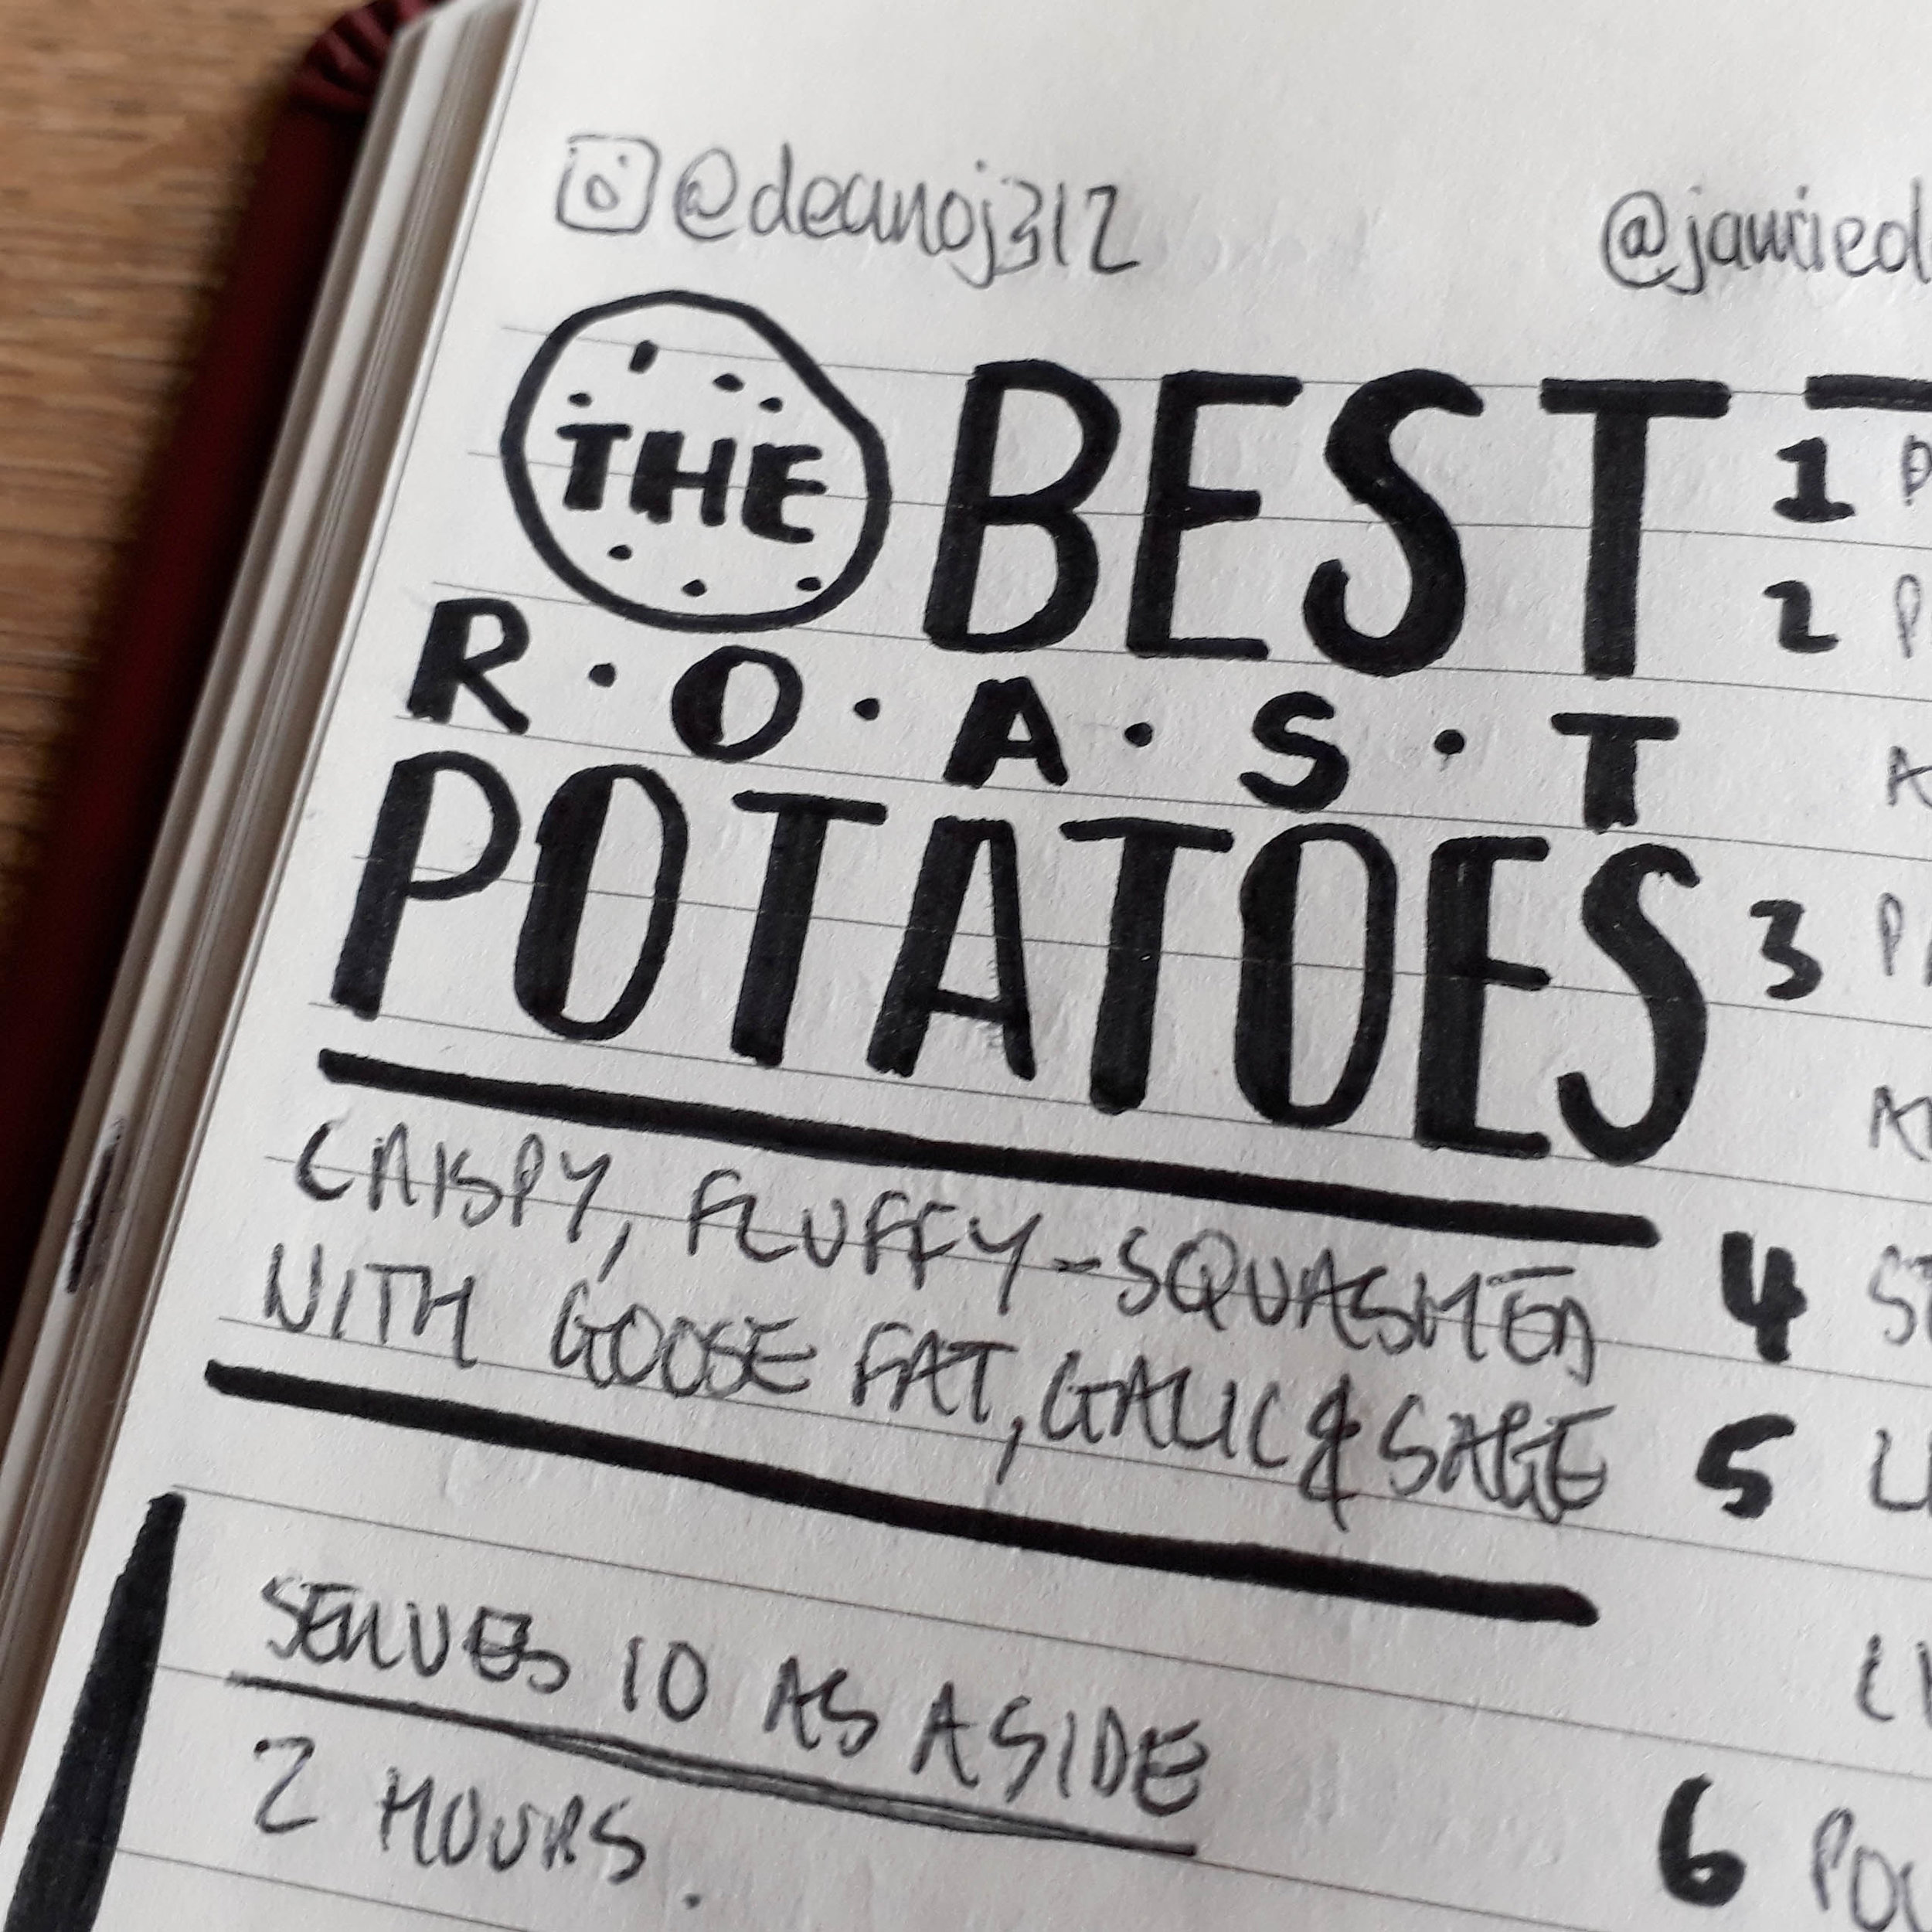 @deanoj312
@jamieol
THE BEST
R.O.A.S.T
POTATOES
CRISPY, FLUFFY-SQUASHED
WITH GOOSE FAT, GALIC & SAGE
SERVES 10 AS A SIDE
2 HOURS.
1 P
2 P
3 P
4 ST
5
6 POU